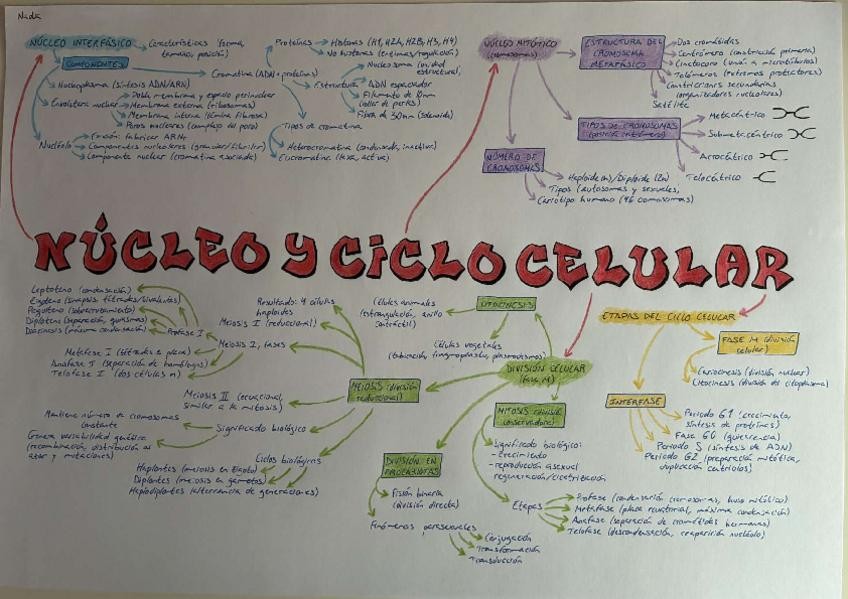 Nadia
NÚCLEO INTERFÁSICO
Características (forma,
tamaño, posición)
COMPONENTES
Nucleoplasma (síntesis ADN/ARN)
Envoltura nuclear
Doble membrana y espacio perinuclear
Membrana externa (ribosomas)
Membrana interna (lámina fibrosa)
Poros nucleares (complejo del poro)
Nucléolo
Función: fabricar ARNr
Componentes nucleolares (granular/fibrilar)
Componente nuclear (cromatina asociada)
Cromatina (ADN + proteínas)
Proteínas
Histonas (H1, H2A, H2B, H3, H4)
No histonas (enzimas/regulación)
Estructura
Nucleosoma (unidad
estructural,
ADN espaciador
Filamento de 10nm
(collar de perlas)
Fibra de 30nm (solenoide)
Tipos de cromatina
Heterocromatina (condensada, inactiva)
Eucromatina (laxa, activa)
NÚCLEO MITÓTICO
(cromosomas)
ESTRUCTURA DEL
CROMOSOMA
METAFÁSICO
Dos cromátidas
Centrómero (constricción primaria)
Cinetocoro (unión a microtúbulos)
Telómeros (extremos protectores)
Constricciones secundarias
(organizadores nucleolares)
Satélite
TIPOS DE CROMOSOMAS
Metacéntrico
Submetacéntrico
Acrocéntrico
Telocéntrico
NÚMERO DE
CROMOSOMAS
Haploide (n)/Diploide (2n)
Tipos (autosomas y sexuales,
Cariotipo humano (46 cromosomas)
NÚCLEO Y CICLO CELULAR
Leptoteno (condensación)
Zigoteno (sinapsis tétradas/bivalentes)
Paquiteno (sobrecruzamiento)
Diploteno (separación, quiasmas)
Diacinesis (máxima condensación)
Profase I
Metafase I (tétradas a placa)
Anafase I (separación de homólogos)
Telofase I (dos células n)
Resultado: 4 células
haploides
Meiosis I (reduccional)
Meiosis I, fases
MEIOSIS (división
reduccional)
Meiosis II (ecuacional,
similar a la mitosis)
Significado biológico
Mantiene número de cromosomas
constante
Genera variabilidad genética
(recombinación, distribución al
azar y mutaciones)
Ciclos biológicos
Haplontes (meiosis en zigoto)
Diplontes (meiosis en gametos)
Haplodiplontes (alternancia de generaciones)
CITOCINESIS
Células animales
(estrangulación, anillo
contráctil)
Células vegetales
(tabicación, fragmoplasto, plasmodesmos)
DIVISIÓN CELULAR
(fase M)
MITOSIS (división
conservadora)
Significado biológico:
- crecimiento
- reproducción asexual
regeneración/cicatrización
Etapas
Profase (condensación cromosomas, huso mitótico)
Metafase (placa ecuatorial, máxima condensación)
Anafase (separación de cromátidas hermanas)
Telofase (descondensación, reaparición nucléolo)
DIVISIÓN EN
PROCARIOTAS
Fisión binaria
(división directa)
Fenómenos parasexuales
Conjugación
Transformación
Transducción
ETAPAS DEL CICLO CELULAR
FASE M (división
celular)
Cariocinesis (división nuclear)
Citocinesis (división de citoplasma)
INTERFASE
Periodo G1 (crecimiento,
síntesis de proteínas)
Fase G0 (quiescencia)
Periodo S (síntesis de ADN)
Periodo G2 (preparación mitótica,
duplicación centriolos)